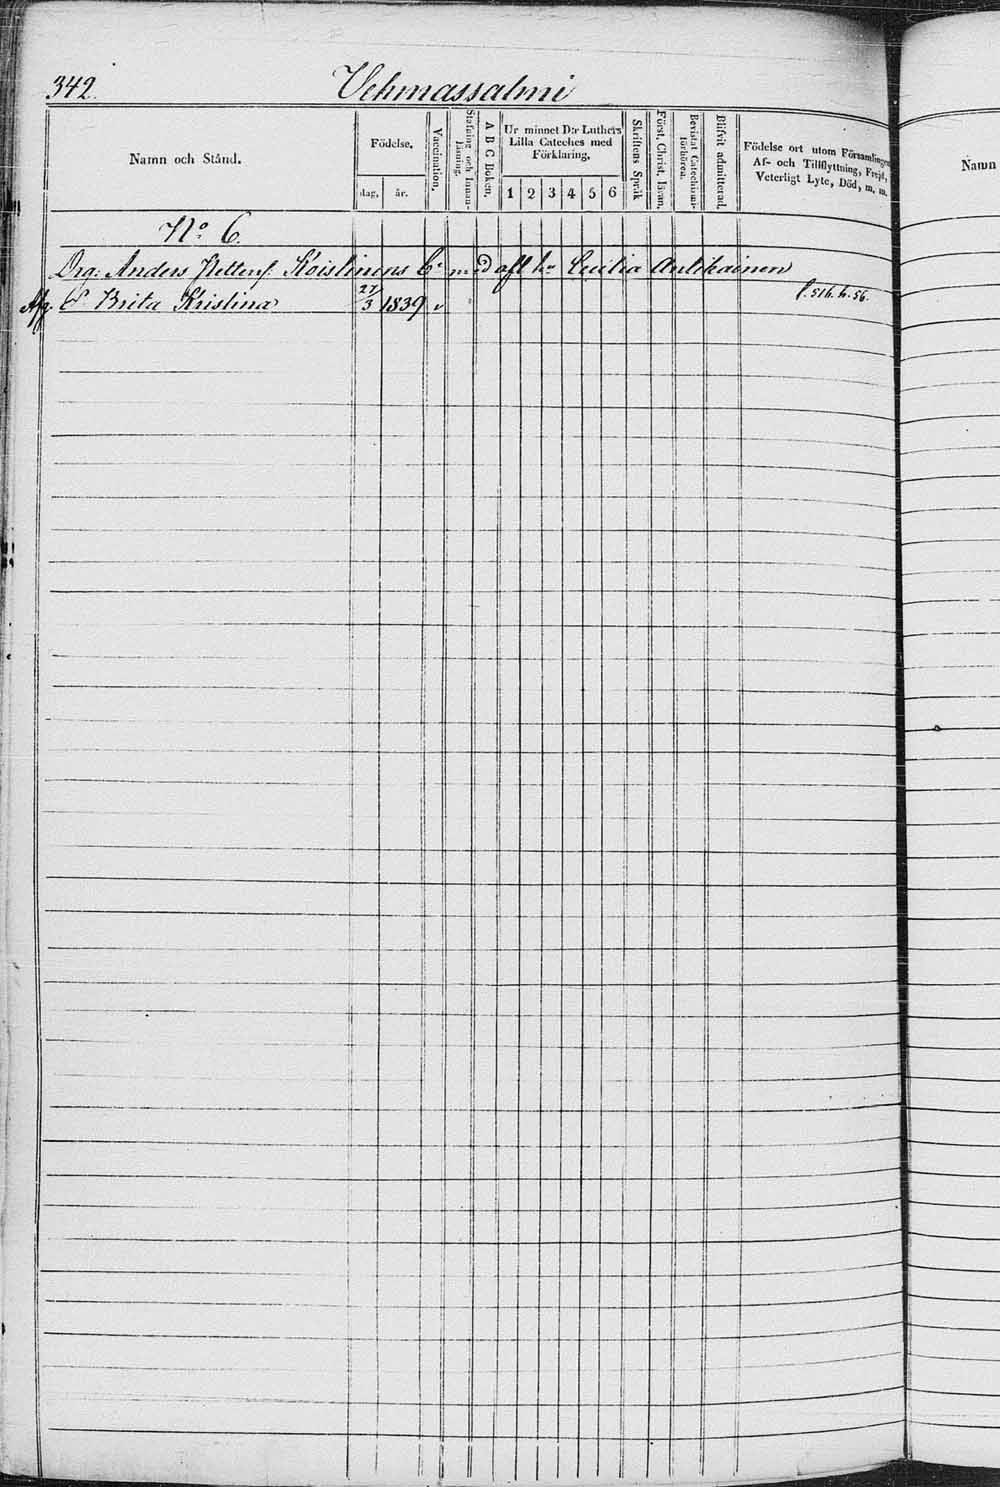 342. Vehmassalmi
Namn och Stånd.
Födelse.
dag. år.
Vaccination.
Stafning och Innanläsning.
A B C Boken.
Ur minnet D:r Luthers Lilla Cateches med Förklaring.
1 2 3 4 5 6
Skriftens Språk
Först. Christ. Läran.
Bevistat Catechismiförhören.
Blifvit admitterad.
Födelse ort utom Församlingen,
Af- och Tillflyttning, Frejd,
Veterligt Lyte, Död, m. m.
Namn
No. 6.
Drg: Anders Petterss. Koistinens b. med afl. h. Cecilia Antikainen
Afg. d. Brita Kristina 27/3 1839 v f. 516. h. 56.